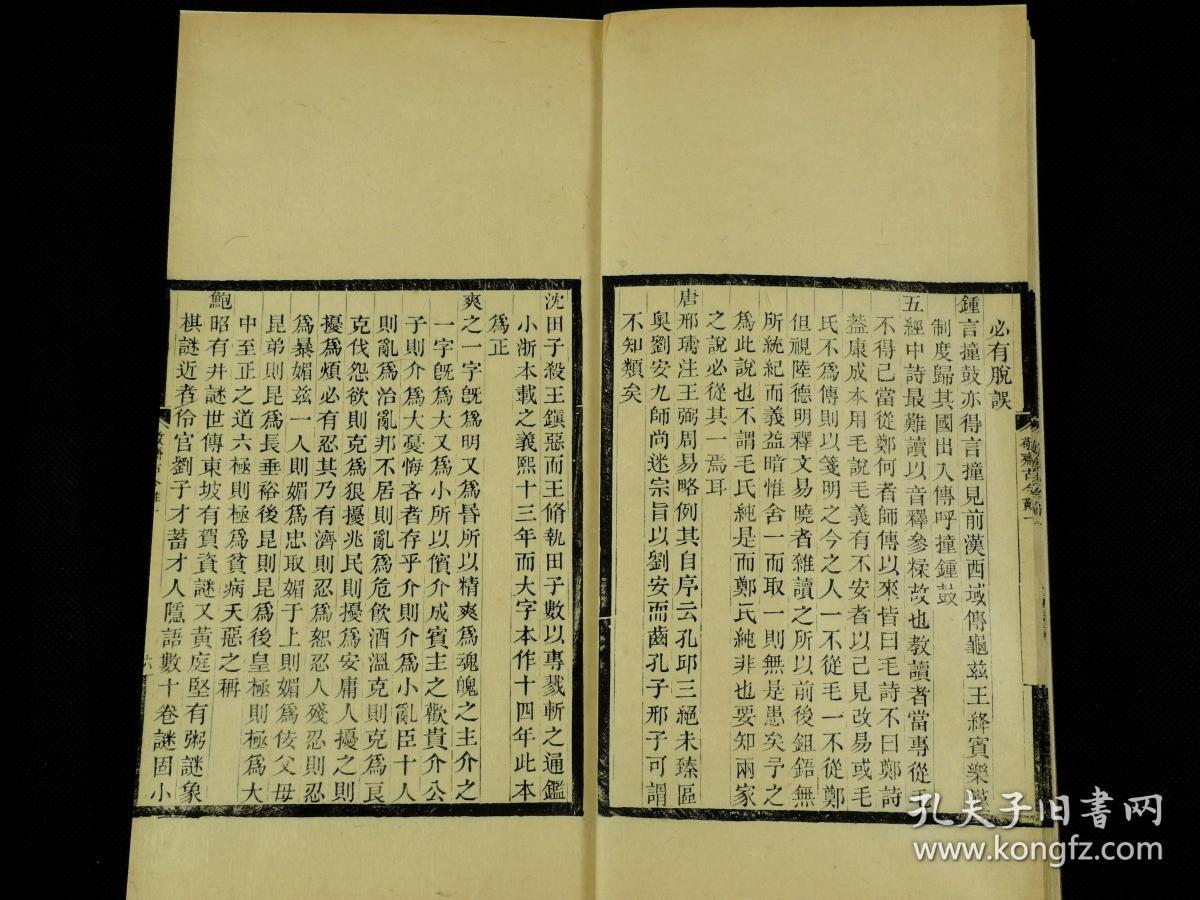 必有脫誤
鍾言撞鼓亦得言撞見前漢西域傳龜兹王絳賓樂漢
制度歸其國出入傳呼撞鍾鼓
五經中詩最難讀以音釋參糅故也教讀者當專從毛
不得已當從鄭何者師傳以來皆曰毛詩不曰鄭詩
葢康成本用毛說毛義有不安者以己見改易或毛
氏不爲傳則以箋明之今之人一不從毛一不從鄭
但視陸德明釋文易曉者雜讀之所以前後鉏鋙無
所統紀而義益暗惟舍一而取一則無是患矣予之
爲此說也不謂毛氏純是而鄭氏純非也要知兩家
之說必從其一焉耳
唐邢璹注王弼周易略例其自序云孔邱三絕未臻區
奥劉安九師尚迷宗旨以劉安而齒孔子邢子可謂
不知類矣
敬齋古今黈一
沈田子殺王鎭惡而王脩執田子數以專戮斬之通鑑
小浙本載之義熙十三年而大字本作十四年此本
爲正
爽之一字旣爲明又爲昏所以精爽爲魂魄之主介之
一字旣爲大又爲小所以儐介成賓主之歡貴介公
子則介爲大憂悔吝者存乎介則介爲小亂臣十人
則亂爲治亂邦不居則亂爲危飲酒溫克則克爲良
克伐怨欲則克爲狠擾兆民則擾爲安庸人擾之則
擾爲煩必有忍其乃有濟則忍爲恕忍人殘忍則忍
爲暴媚兹一人則媚爲忠取媚于上則媚爲佞父母
昆弟則昆爲長垂裕後昆則昆爲後皇極則極爲大
中至正之道六極則極爲貧病夭惡之稱
鮑昭有井謎世傳東坡有賀資謎又黃庭堅有粥謎象
棋謎近者伶官劉子才蓄才人隱語數十卷謎固小
六
孔夫子旧书网
www.kongfz.com